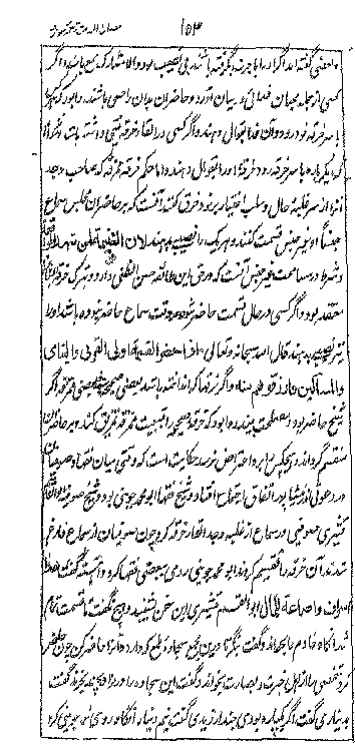 ۱۵۳
و بعضی گفته اند اگر از ما با جرقه نگرفته باشند بی نصیب بود و الا مشارک جمع باشد و اگر
کسی از جمله محبان فدائی در میان آرد و حاضران بدان راضی باشند روا بود که
با سر خرقه خود رود و آن فدا بقوال دهند و اگر کسی در القاء خرقه نیتی داشته باشد
که دیگر باره با سر خرقه رود خرقه او را بقوال دهند و اما حکم خرقه ممزقه که صاحب وجد
آنرا از سر غلبه حال و سلب اختیار بر خود خرق کند آنست که بر حاضران مجلس سماع
جنساً او غیر جنس قسمت کنند و هر یک را نصیبی بدهند لان الغنیمة لمن شهد الوقعة
و شرط در مساهمت غیر جنس آنست که در حق این طائفه حسن الظنی دارد و به تبرک خرقه
معتقد بود و اگر کسی در حال قسمت حاضر شود و وقت سماع حاضر نبوده باشد او را
نیز نصیب بدهند قال الله سبحانه و تعالی و اذا حضر القسمة اولی القربی و الیتامی
والمساکین فارزقوهم منه و اگر خرقها که انداخته باشند بعضی صحیح بود و بعضی ممزقه اگر
شیخ حاضر بود و مصلحت بیند روا بود که خرقه صحیح را به تبعیت ممزقه تفریق کند و بر حاضران
منقسم گرداند و هیچکس را برو اعتراض نرسد حکایت است که وقتی میان فقها و صوفیان
در دعوتی که در نیشاپور اتفاق اجتماع افتاد و شیخ فقها ابو محمد جوینی بود و شیخ صوفیه ابوالقاسم
قشیری صوفیی در سماع از غلبه وجد القاء خرقه کرد چون صوفیان از سماع فارغ
شدند آن خرقه را تقسیم کردند ابو محمد جوینی روی ببعضی فقها کرد و آهسته گفت هذا
اسراف و اضاعة للمال ابوالقسم قشیری این سخن شنید و هیچ نگفت تا قسمت تمام
شد آنگاه خادم را بخواند و گفت بنگر تا درین جمع سجاده مرقع که دارد و آنرا حاضر کن چون حاضر
کرد شخصی را از اهل خبرت و بصارت بخواند و گفت این سجاده را در مزاد بچند بخرند گفت
بدیناری گفت اگر یکپاره بودی چند ارزیدی گفت نیم دینار آنگاه روی بابو محمد جوینی کرد